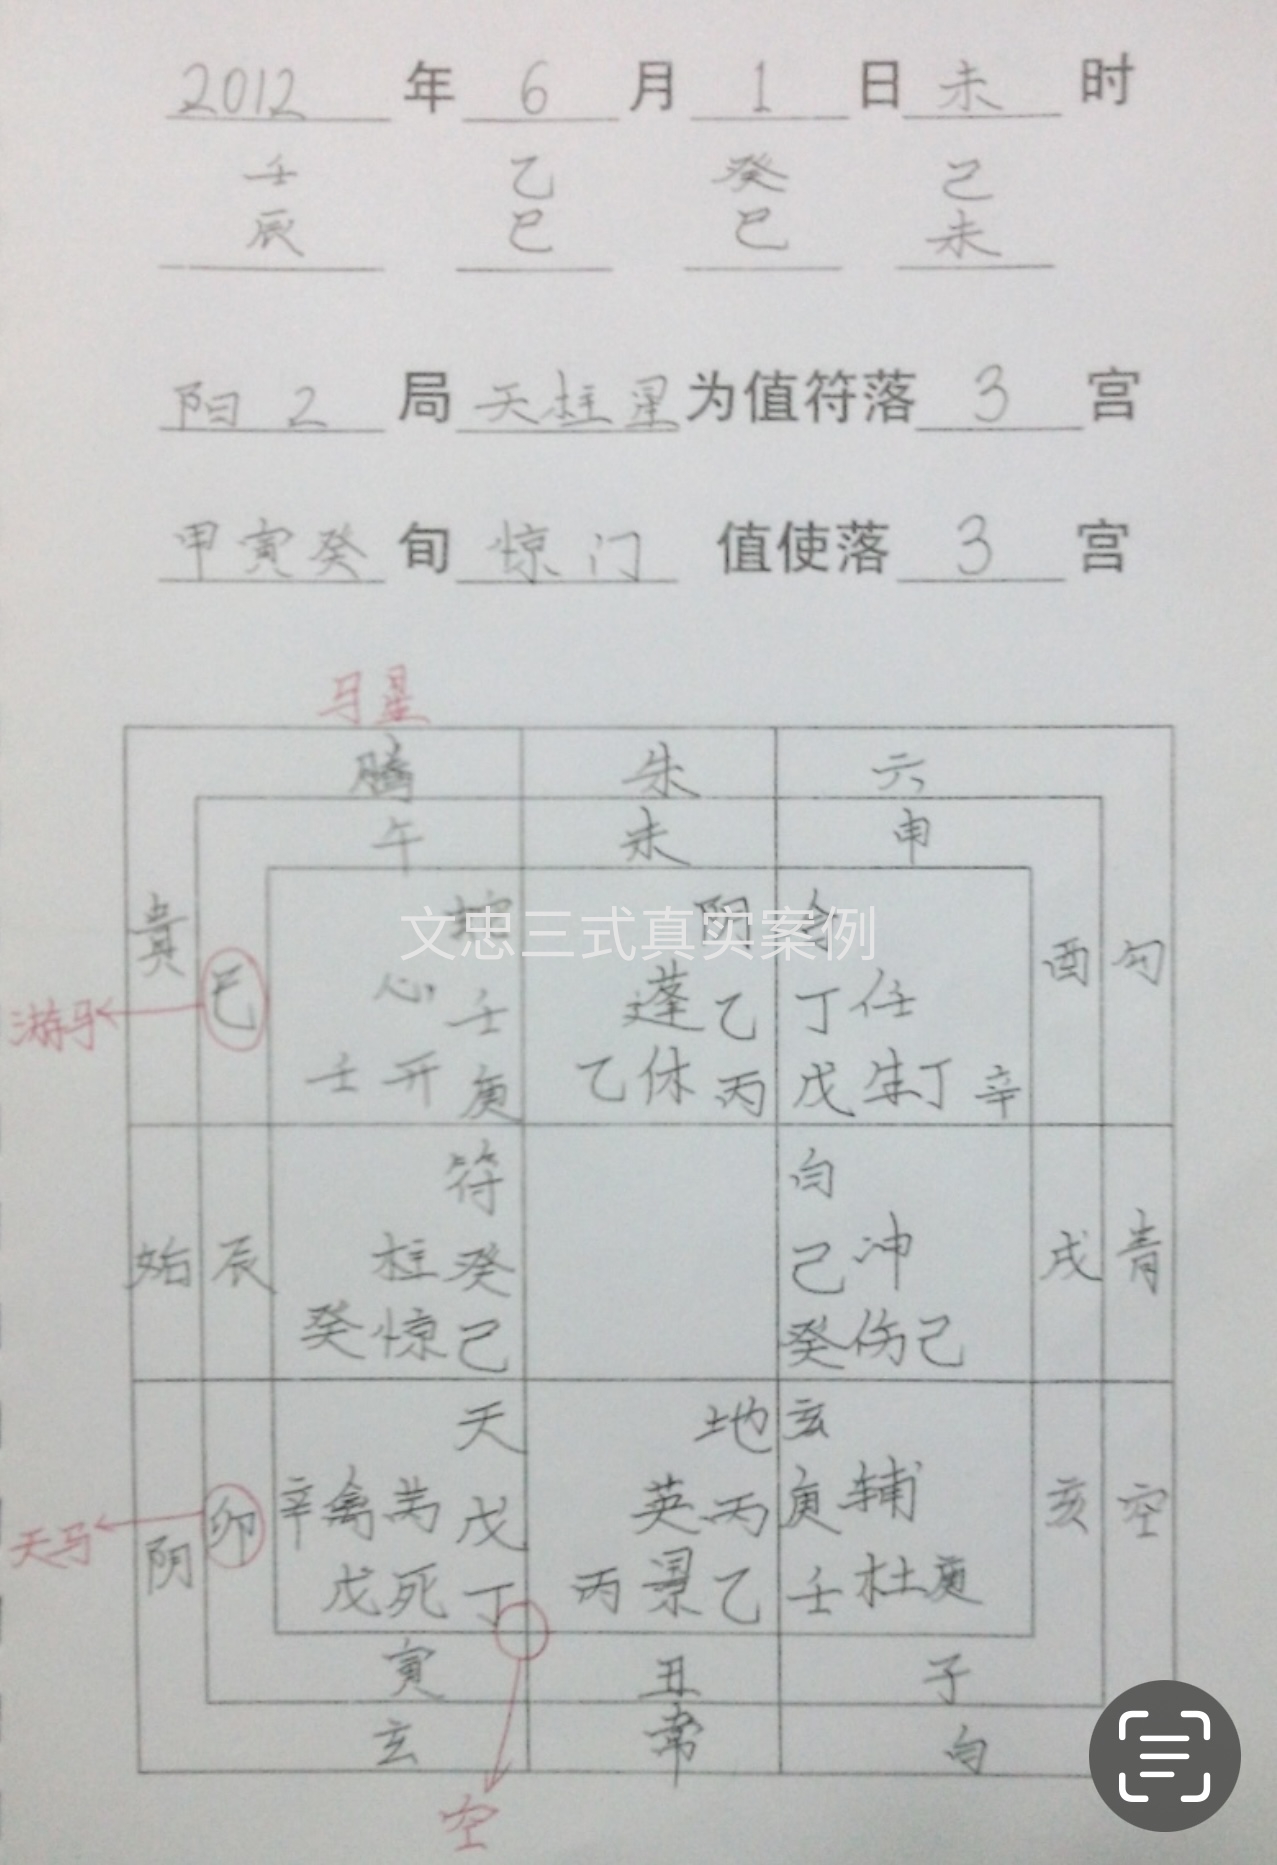 2012 年 6 月 1 日 未 时
壬 乙 癸 己
辰 巳 巳 未
阳 2 局 天柱星 为值符落 3 宫
甲寅癸 旬 惊门 值使落 3 宫
马星
腾 朱 六
午 未 申
贵 巳 蛇 阴 合 酉 勾
文忠三式真实案例
游马 心 壬 蓬 乙 丁 任
壬 开 庚 乙 休 丙 戊 生 丁 辛
符 白
始 辰 柱 癸 己 冲 戌 青
癸 惊 己 癸 伤 己
天 地 玄
天马 阴 卯 辛 禽 芮 戊 英 丙 庚 辅 亥 空
戊 死 丁 丙 景 乙 壬 杜 庚
寅 丑 子
玄 常 白
空